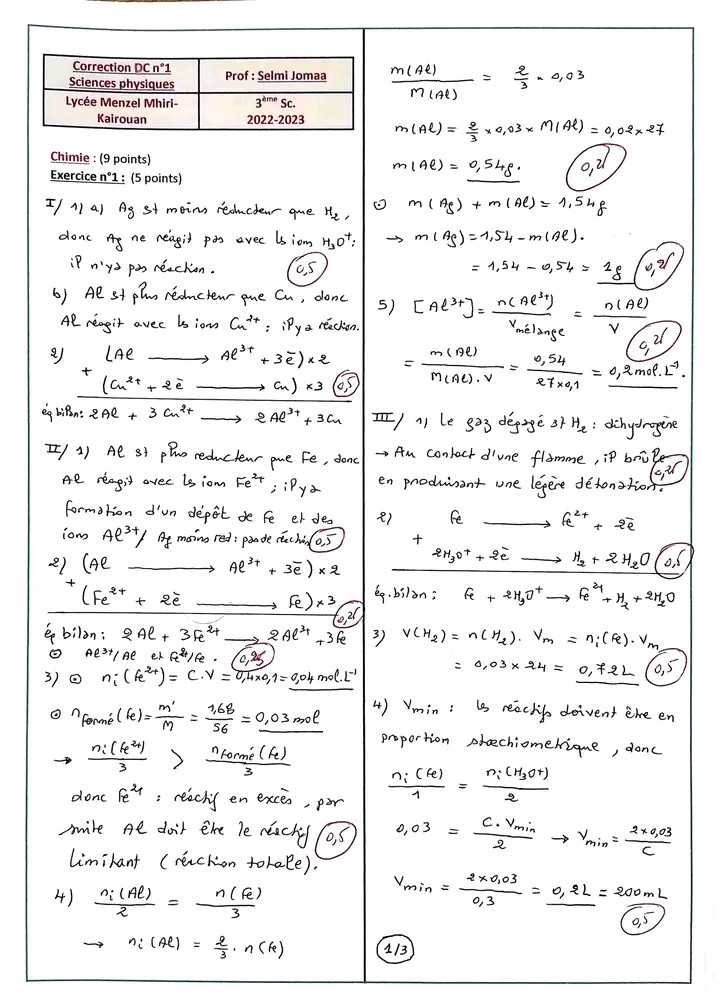 Correction DC n°1
Sciences physiques
Prof : Selmi Jomaa
Lycée Menzel Mhiri-
Kairouan
3ème Sc.
2022-2023
Chimie : (9 points)
Exercice n°1 : (5 points)
I/ 1) a) Ag st moins réducteur que H₂,
donc Ag ne réagit pas avec ls ions H₃O⁺:
il n'ya pas réaction. 0,5
b) Al st plus réducteur que Cu, donc
Al réagit avec ls ions Cu²⁺ ; il y a réaction.
2) (Al → Al³⁺ + 3ē) × 2
+
(Cu²⁺ + 2ē → Cu) × 3 0,5
éq bilan: 2Al + 3 Cu²⁺ → 2Al³⁺ + 3Cu
II/ 1) Al st plus reducteur que Fe, donc
Al réagit avec ls ions Fe²⁺ ; il y a
formation d'un dépôt de Fe et des
ions Al³⁺/ Ag moins red: pas de réaction 0,5
2) (Al → Al³⁺ + 3ē) × 2
+
(Fe²⁺ + 2ē → Fe) × 3 0,25
éq bilan: 2Al + 3Fe²⁺ → 2Al³⁺ + 3Fe
⊙ Al³⁺/Al et Fe²⁺/Fe. 0,25
3) ⊙ ni(Fe²⁺) = C.V = 0,4×0,1 = 0,04 mol.L⁻¹
⊙ nformé(Fe) = m'/M = 1,68/56 = 0,03 mol
→ ni(Fe²⁺)/3 > nformé(Fe)/3
donc Fe²⁺ : réactif en excès, par
suite Al doit être le réactif 0,5
limitant (réaction totale).
4) ni(Al)/2 = n(Fe)/3
→ ni(Al) = 2/3 . n(Fe)
m(Al)/M(Al) = 2/3 × 0,03
m(Al) = 2/3 × 0,03 × M(Al) = 0,02 × 27
m(Al) = 0,54g. 0,25
⊙ m(Ag) + m(Al) = 1,54g
→ m(Ag) = 1,54 - m(Al).
= 1,54 - 0,54 = 1g 0,25
5) [Al³⁺] = n(Al³⁺)/Vmélange = n(Al)/V
0,25
= m(Al)/M(Al).V = 0,54/27×0,1 = 0,2 mol.L⁻¹.
III/ 1) le gaz dégagé st H₂ : dihydrogène
→ Au contact d'une flamme, il brûle
0,25
en produisant une légère détonation.
2) Fe → Fe²⁺ + 2ē
+
2H₃O⁺ + 2ē → H₂ + 2H₂O 0,5
éq.bilan: Fe + 2H₃O⁺ → Fe²⁺ + H₂ + 2H₂O
3) V(H₂) = n(H₂). Vm = ni(Fe).Vm
= 0,03 × 24 = 0,72L 0,5
4) Vmin : ls réactifs doivent être en
proportion stœchiometrique, donc
ni(Fe)/1 = ni(H₃O⁺)/2
0,03 = C.Vmin/2 → Vmin = 2×0,03/C
Vmin = 2×0,03/0,3 = 0,2L = 200mL
0,5
1/3